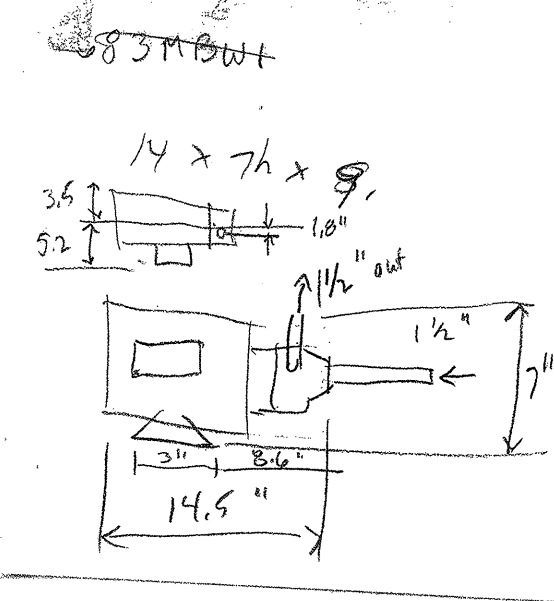 83MBW1
14 x 7h x
3.5
5.2
1.8"
1 1/2" out
1 1/2"
7"
3"
8.6"
14.5"